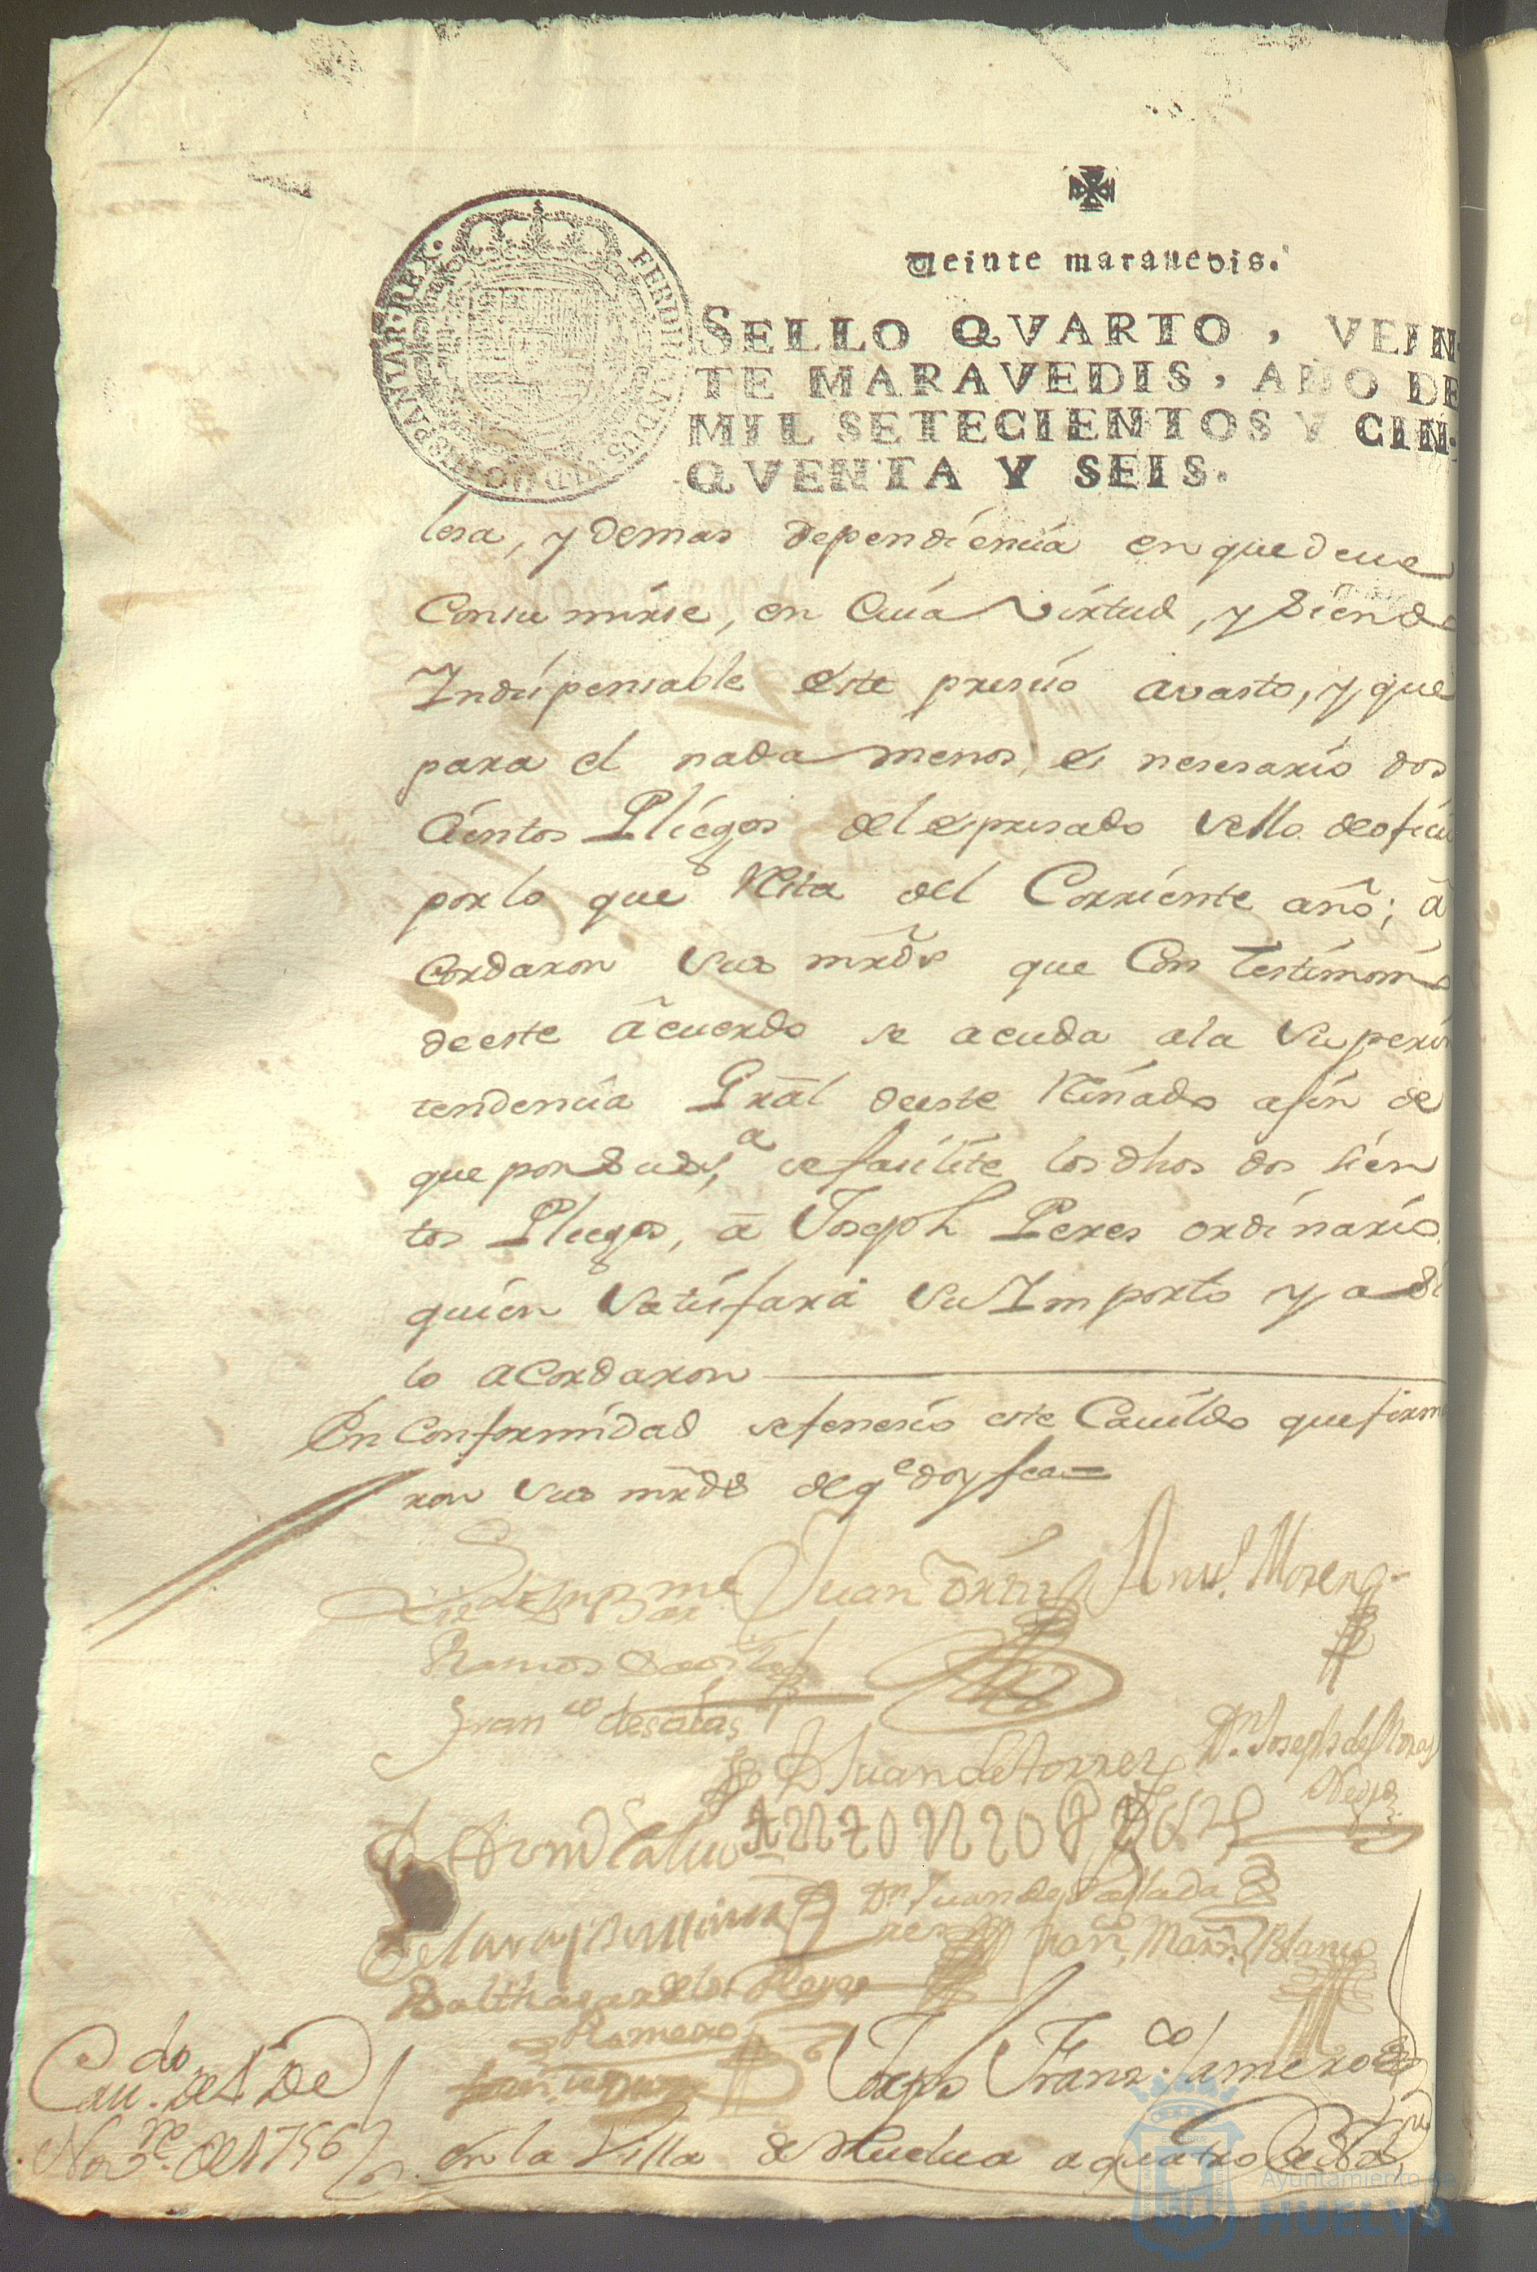 Veinte maravedis.
SELLO QVARTO, VEIN-
TE MARAVEDIS, AÑO DE
MIL SETECIENTOS Y CIN-
QVENTA Y SEIS.
FERDINANDUS HISPANIAR. REX.
losa, y demas dependiencia en que deue
Consumirse, en Cuia Virtud, y Siendo
Indispensable este presiso avasto, y que
para el nada menos, es nesesario dos
Cientos Pliegos del espresado Sello de ofici
por lo que Rsta del Corriente año; a
Cordaron Sus mrds que Con testimonio
de este acuerdo se acuda a la Superin
tendencia Gral de este Reinado afin de
que por Su Sª se facilite los dhos dos sien
tos Pliegos, a Joseph Peres ordinario
quien Satisfara Su Importo y asi
lo acordaron
En Conformidad se fenesio este Cauildo que firma
ron Sus mrds de qe doy fee =
Juan Ortiz Anttº Moreno
Ramos Davila
Franco de salas
D Juan de torres Dn. Joseph de
Dn Juan de
Franco Martn Blanco
Balthasar de los Reyes
Romero
Joseph Franzco Romero
Caudo. de 4 De
Nove. de 1756
en la Villa de Huelua a quatro de
Ayuntamiento de
HUELVA